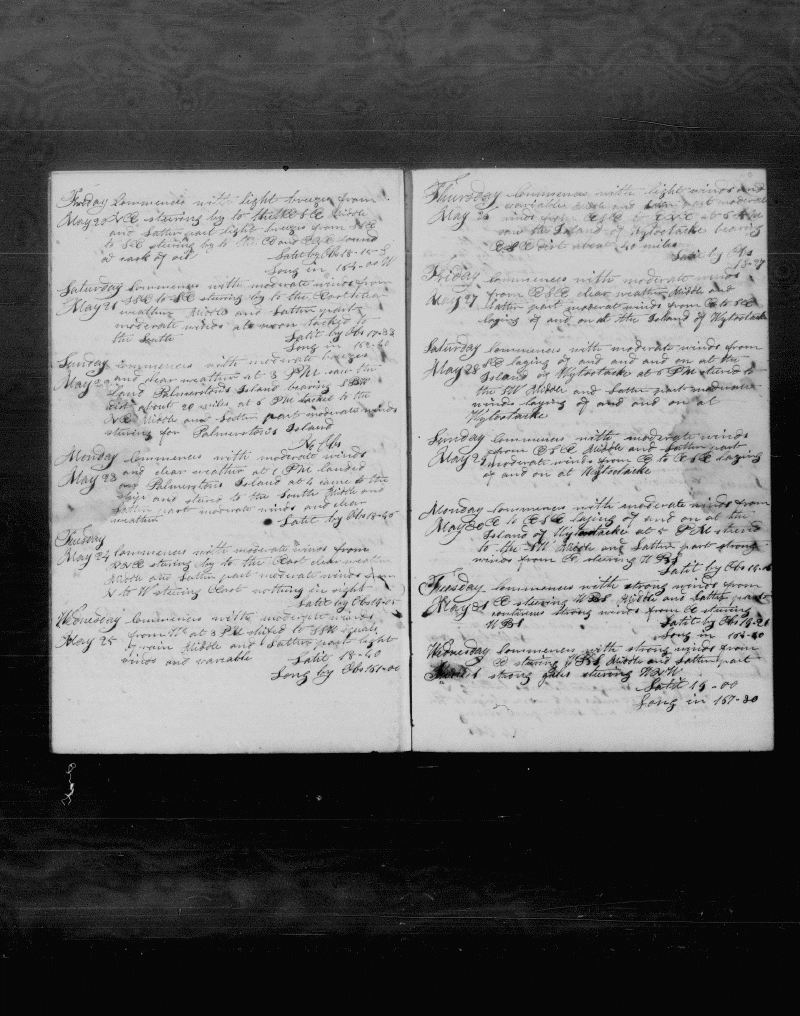 Friday Commences with light breeze from
May 20 steering by to the ESE Middle
and Latter part light breezes from
to SE steering by to the found
at cask of oil Latit by Obs 18-15 S
Long in 164-00 W
Saturday Commences with moderate winds from
May 21 SSE to SE steering by to the Eastward
weather Middle and Latter part
moderate winds at noon tacked to
the South Latit by Obs 17-33
Long in 162-40
Sunday Commences with moderate breezes
May 22 and clear weather at 3 PM saw the
Land Palmerstons Island bearing SBW
dist about 20 miles at 6 PM tacked to the
Middle and Latter part moderate winds
steering for Palmerstons Island
No Obs
Monday Commences with moderate winds
May 23 and clear weather at 1 PM landed
on Palmerstons Island at 4 came to the
ship and stood to the South Middle and
Latter part moderate winds and clear
weather Latit by Obs 18-45
Tuesday
May 24 Commences with moderate winds from
steering by to the East clear weather
Middle and Latter part moderate winds from
N to W steering East nothing in sight
Latit by Obs
Wednesday Commences with moderate winds
May 25 from W at 3 PM shifted to SSW squals
of rain Middle and Latter part light
winds and variable Latit 18-40
Long by Obs 157-00
Thursday Commences with light winds and
May 26 variable Middle and Latter part moderate
winds from ESE to at 6 AM
saw the Island of Wytostacke bearing
ESE dist about 40 miles
Latit by Obs
18-27
Friday Commences with moderate winds
May 27 from ESE clear weather Middle and
Latter part moderate winds from E to SE
laying of and on at the Island of Wytostacke
Saturday Commences with moderate winds from
May 28 SE laying of and and on at the
Island of Wytostacke at 5 PM steered to
the SW Middle and Latter part moderate
winds laying of and and on at
Wytostacke
Sunday Commences with moderate winds
May 29 from ESE Middle and Latter part
moderate winds from E to ESE laying
of and on at Wytostacke
Monday Commences with moderate winds from
May 30 E to ESE laying of and on at the
Island of Wytostacke at 5 PM steered
to the NW Middle and Latter part strong
winds from E steering WBS
Latit by Obs
Tuesday Commences with strong winds from
May 31 E steering WBS Middle and Latter part
continues strong winds from E steering
WBS Latit by Obs 19-21
Long in 164-40
Wednesday Commences with strong winds from
June 1 E steering WBS Middle and Latter part
strong gales steering
Latit 19-00
Long in 167-30